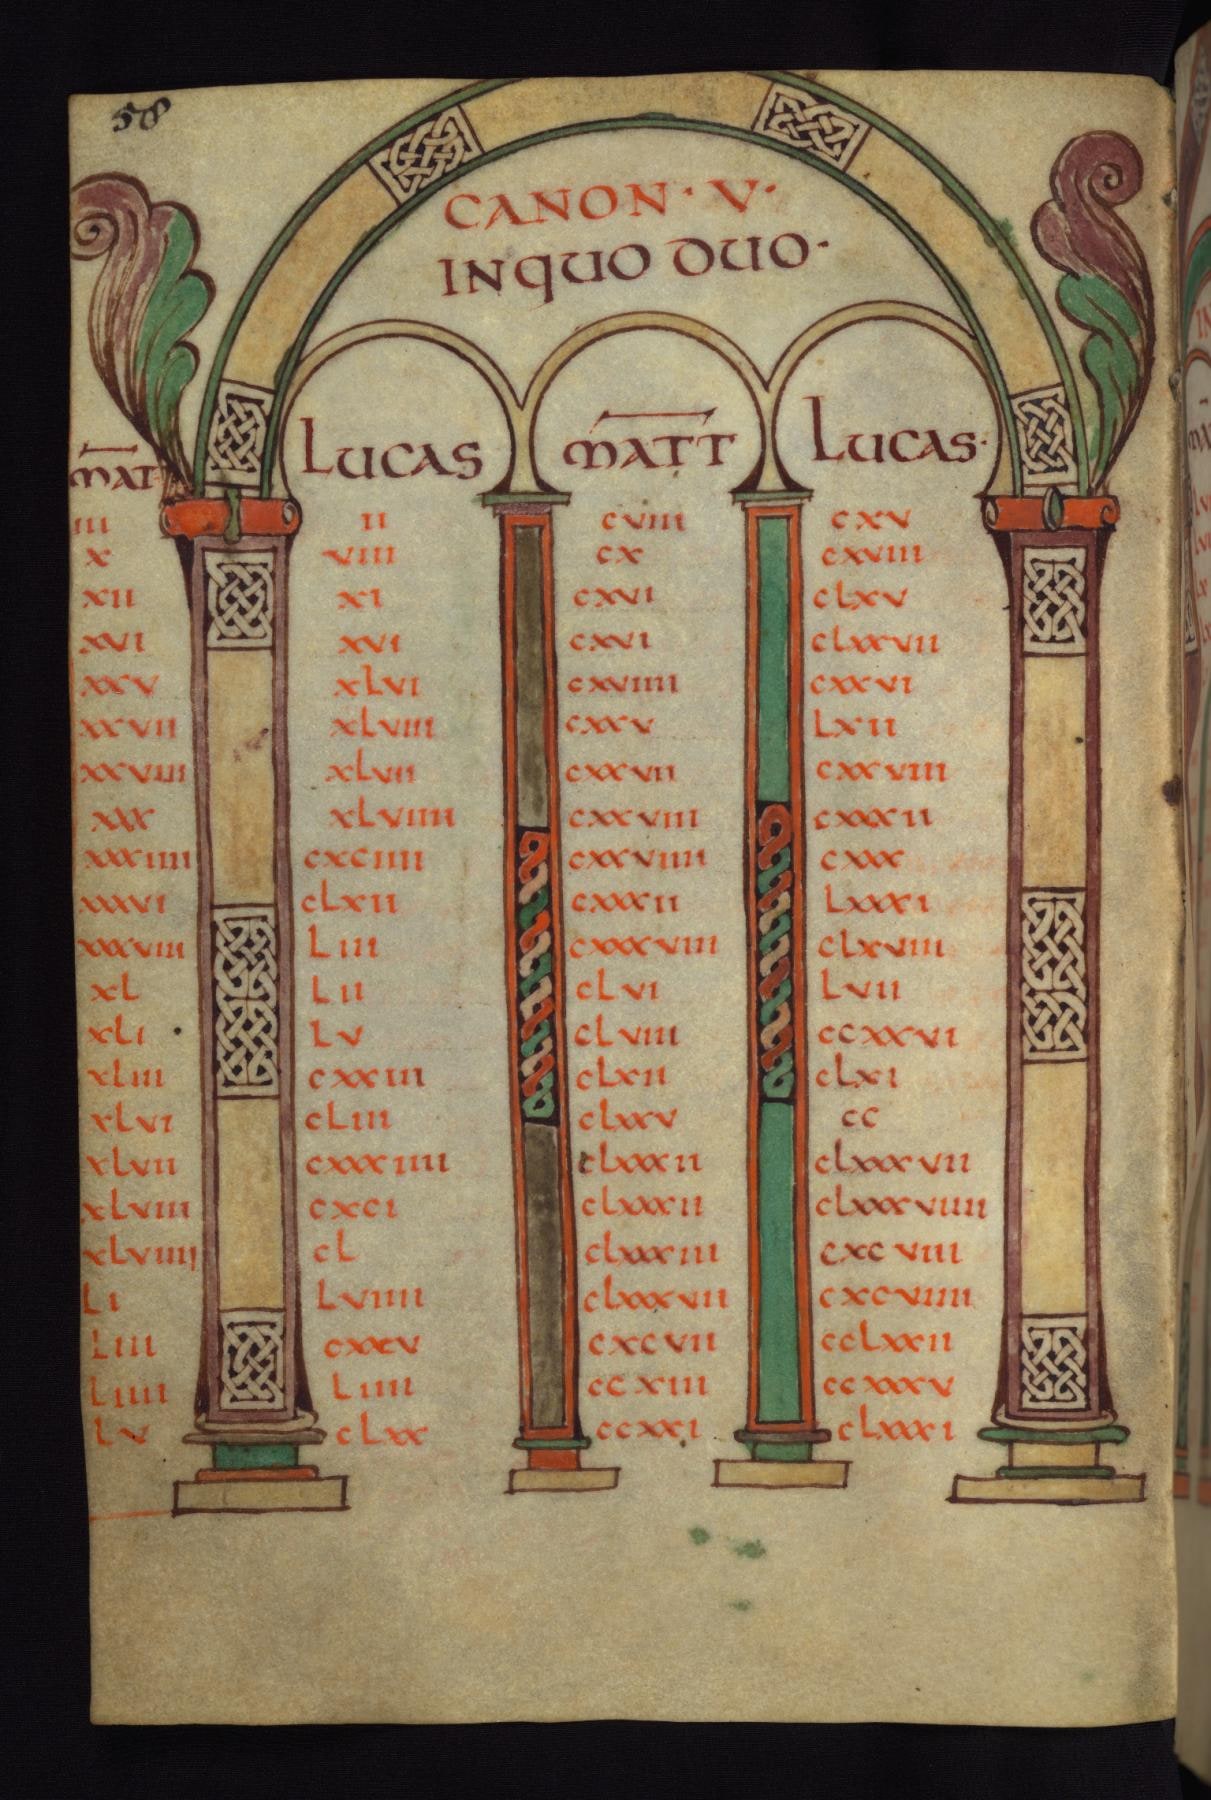 58
CANON · V ·
IN QUO DUO ·
MAT LUCAS MATT LUCAS ·
III II CVIII CXV
X VIII CX CXVIII
XII XI CXVI CLXV
XVI XVI CXVI CLXXVII
XXV XLVI CXVIIII CXXVI
XXVII XLVIII CXXV LXII
XXVIIII XLVII CXXVII CXXVIII
XXX XLVIIII CXXVIII CXXXII
XXXIIII CXCIIII CXXVIIII CXXX
XXXVI CLXII CXXXII LXXXI
XXXVIII LIII CXXXVIII CLXVIII
XL LII CLVI LVII
XLI LV CLVIII CCXXVI
XLIII CXXIII CLXII CLXI
XLVI CLIII CLXXV CC
XLVII CXXXIIII CLXXXII CLXXXVII
XLVIII CXCI CLXXXII CLXXXVIIII
XLVIIII CL CLXXXIII CXCVIII
LI LVIIII CLXXXVII CXCVIIII
LIII CXXV CXCVII CCLXXII
LIIII LIIII CCXIII CCXXXV
LV CLXX CCXXI CLXXXI